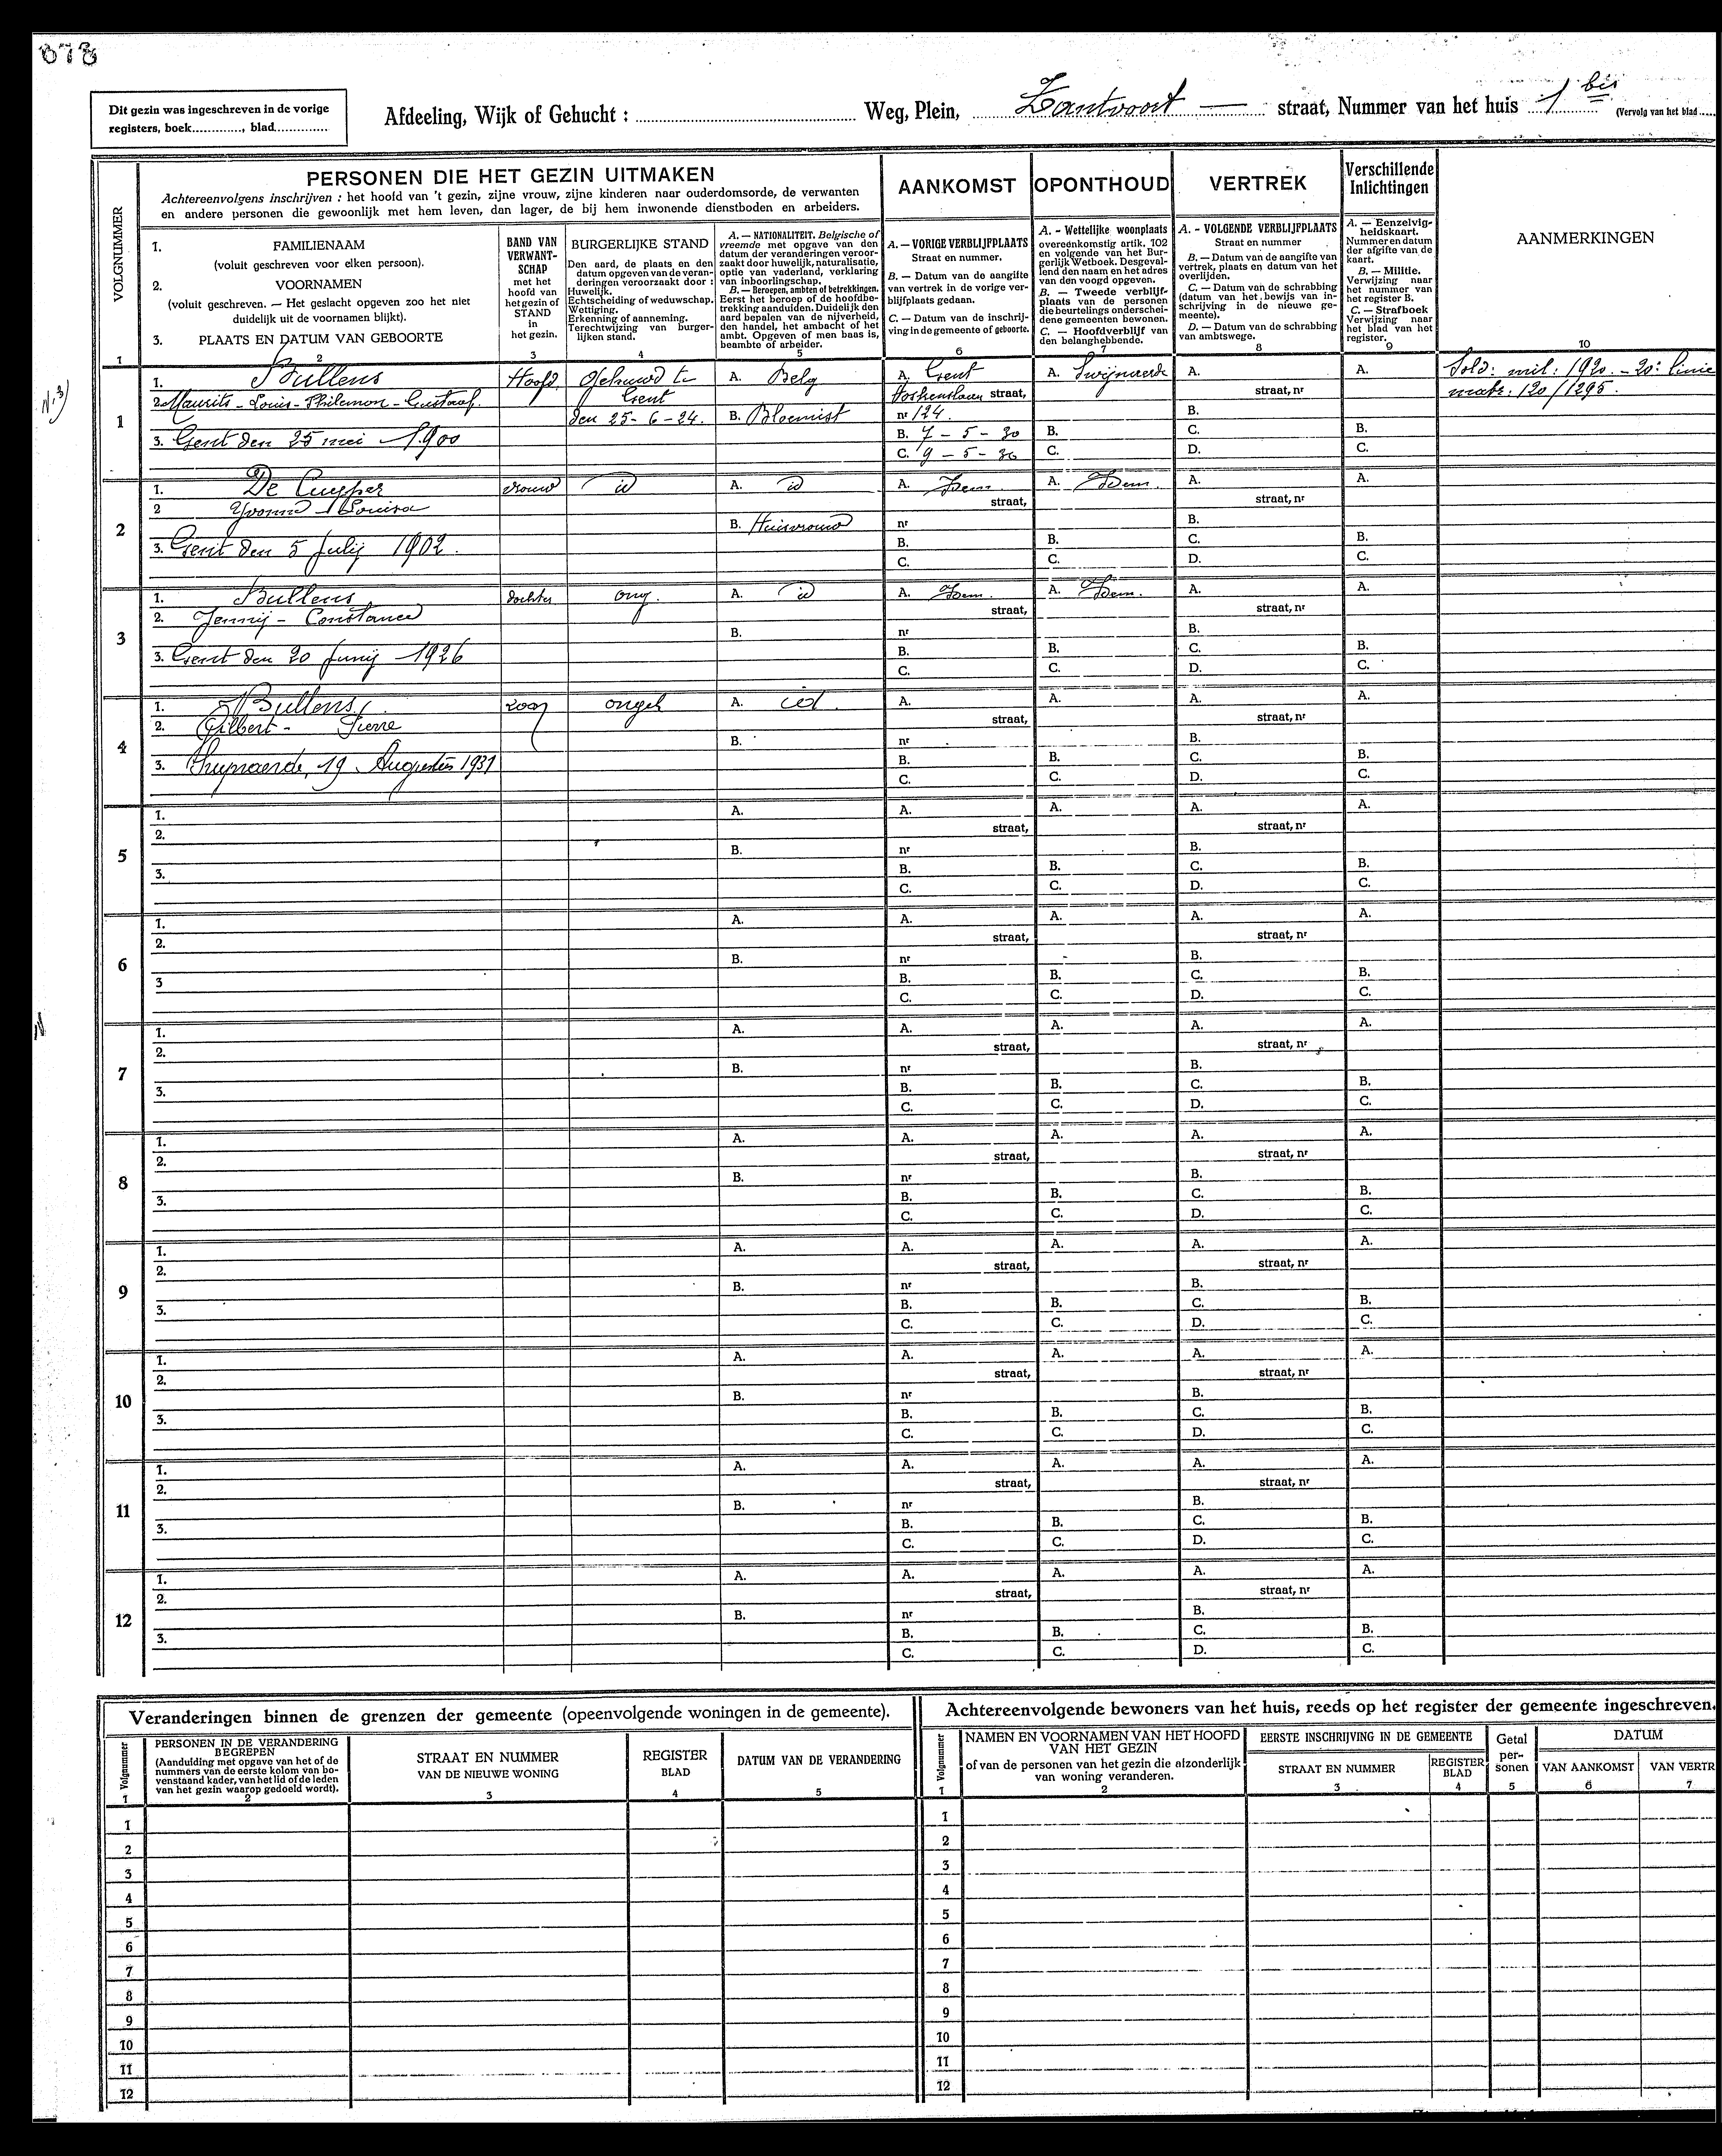 878
Dit gezin was ingeschreven in de vorige
registers, boek............., blad..............
Afdeeling, Wijk of Gehucht : ........ Weg, Plein, Zantvoort — straat, Nummer van het huis 1 bis (Vervolg van het blad .....
VOLGNUMMER
PERSONEN DIE HET GEZIN UITMAKEN
Achtereenvolgens inschrijven : het hoofd van 't gezin, zijne vrouw, zijne kinderen naar ouderdomsorde, de verwanten
en andere personen die gewoonlijk met hem leven, dan lager, de bij hem inwonende dienstboden en arbeiders.
1. FAMILIENAAM
(voluit geschreven voor elken persoon).
2. VOORNAMEN
(voluit geschreven. — Het geslacht opgeven zoo het niet
duidelijk uit de voornamen blijkt).
3. PLAATS EN DATUM VAN GEBOORTE
BAND VAN
VERWANT-
SCHAP
met het
hoofd van
het gezin of
STAND
in
het gezin.
BURGERLIJKE STAND
Den aard, de plaats en den
datum opgeven van de veran-
deringen veroorzaakt door :
Huwelijk.
Echtscheiding of weduwschap.
Wettiging.
Erkenning of aanneming.
Terechtwijzing van burger-
lijken stand.
A. — NATIONALITEIT. Belgische of
vreemde met opgave van den
datum der veranderingen veroor-
zaakt door huwelijk, naturalisatie,
optie van vaderland, verklaring
van inboorlingschap.
B. — Beroepen, ambten of betrekkingen.
Eerst het beroep of de hoofdbe-
trekking aanduiden. Duidelijk den
aard bepalen van de nijverheid,
den handel, het ambacht of het
ambt. Opgeven of men baas is,
beambte of arbeider.
AANKOMST
A. — VORIGE VERBLIJFPLAATS
Straat en nummer.
B. — Datum van de aangifte
van vertrek in de vorige ver-
blijfplaats gedaan.
C. — Datum van de inschrij-
ving in de gemeente of geboorte.
OPONTHOUD
A. - Wettelijke woonplaats
overeenkomstig artik. 102
en volgende van het Bur-
gerlijk Wetboek. Desgeval-
lend den naam en het adres
van den voogd opgeven.
B. — Tweede verblijf-
plaats van de personen
die beurtelings onderschei-
dene gemeenten bewonen.
C. — Hoofdverblijf van
den belanghebbende.
VERTREK
A. - VOLGENDE VERBLIJFPLAATS
Straat en nummer
B. — Datum van de aangifte van
vertrek, plaats en datum van het
overlijden.
C. — Datum van de schrabbing
(datum van het bewijs van in-
schrijving in de nieuwe ge-
meente).
D. — Datum van de schrabbing
van ambtswege.
Verschillende
Inlichtingen
A. — Eenzelvig-
heidskaart.
Nummer en datum
der afgifte van de
kaart.
B. — Militie.
Verwijzing naar
het nummer van
het register B.
C. — Strafboek
Verwijzing naar
het blad van het
register.
AANMERKINGEN
1 2 3 4 5 6 7 8 9 10
1
1. Bullens Hoofd Gehuwd te A. Belg A. Gent A. Swijnaerde A. A. Sold: mil: 1920. - 20: linie
2. Maurits - Louis - Philemon - Gustaaf. Gent straat, straat, nr matr: 120/1295.
den 25-6-24. B. Bloemist nr 124. B.
3. Gent den 25 mei 1900 B. 7 - 5 - 30 B. C. B.
C. 9 - 5 - 30 C. D. C.
2
1. De Cuyper vrouw id A. id A. Idem. A. Idem. A. A.
2 Yvonne - Louisa straat, straat, nr
B. Huisvrouw nr B.
3. Gent den 5 Julij 1902. B. B. C. B.
C. C. D. C.
3
1. Bullens dochter ong. A. id A. Idem. A. Idem. A. A.
2. Jennij - Constance straat, straat, nr
B. nr B.
3. Gent den 20 Junij 1926 B. B. C. B.
C. C. D. C.
4
1. Bullens zoon ongeh A. id. A. A. A. A.
2. Gilbert - Pierre straat, straat, nr
B. nr B.
3. Swijnaerde, 19 Augustus 1931 B. B. C. B.
C. C. D. C.
5
1. A. A. A. A. A.
2. straat, straat, nr
B. nr B.
3. B. B. C. B.
C. C. D. C.
6
1. A. A. A. A. A.
2. straat, straat, nr
B. nr B.
3 B. B. C. B.
C. C. D. C.
7
1. A. A. A. A. A.
2. straat, straat, nr
B. nr B.
3. B. B. C. B.
C. C. D. C.
8
1. A. A. A. A. A.
2. straat, straat, nr
B. nr B.
3. B. B. C. B.
C. C. D. C.
9
1. A. A. A. A. A.
2. straat, straat, nr
B. nr B.
3. B. B. C. B.
C. C. D. C.
10
1. A. A. A. A. A.
2. straat, straat, nr
B. nr B.
3. B. B. C. B.
C. C. D. C.
11
1. A. A. A. A. A.
2. straat, straat, nr
B. nr B.
3. B. B. C. B.
C. C. D. C.
12
1. A. A. A. A. A.
2. straat, straat, nr
B. nr B.
3. B. B. C. B.
C. C. D. C.
Veranderingen binnen de grenzen der gemeente (opeenvolgende woningen in de gemeente).
Volgnummer
PERSONEN IN DE VERANDERING
BEGREPEN
(Aanduiding met opgave van het of de
nummers van de eerste kolom van bo-
venstaand kader, van het lid of de leden
van het gezin waarop gedoeld wordt).
STRAAT EN NUMMER
VAN DE NIEUWE WONING
REGISTER
BLAD
DATUM VAN DE VERANDERING
1 2 3 4 5
1
2
3
4
5
6
7
8
9
10
11
12
Achtereenvolgende bewoners van het huis, reeds op het register der gemeente ingeschreven.
Volgnummer
NAMEN EN VOORNAMEN VAN HET HOOFD
VAN HET GEZIN
of van de personen van het gezin die afzonderlijk
van woning veranderen.
EERSTE INSCHRIJVING IN DE GEMEENTE
STRAAT EN NUMMER
REGISTER
BLAD
Getal
per-
sonen
DATUM
VAN AANKOMST VAN VERTR
1 2 3 4 5 6 7
1
2
3
4
5
6
7
8
9
10
11
12